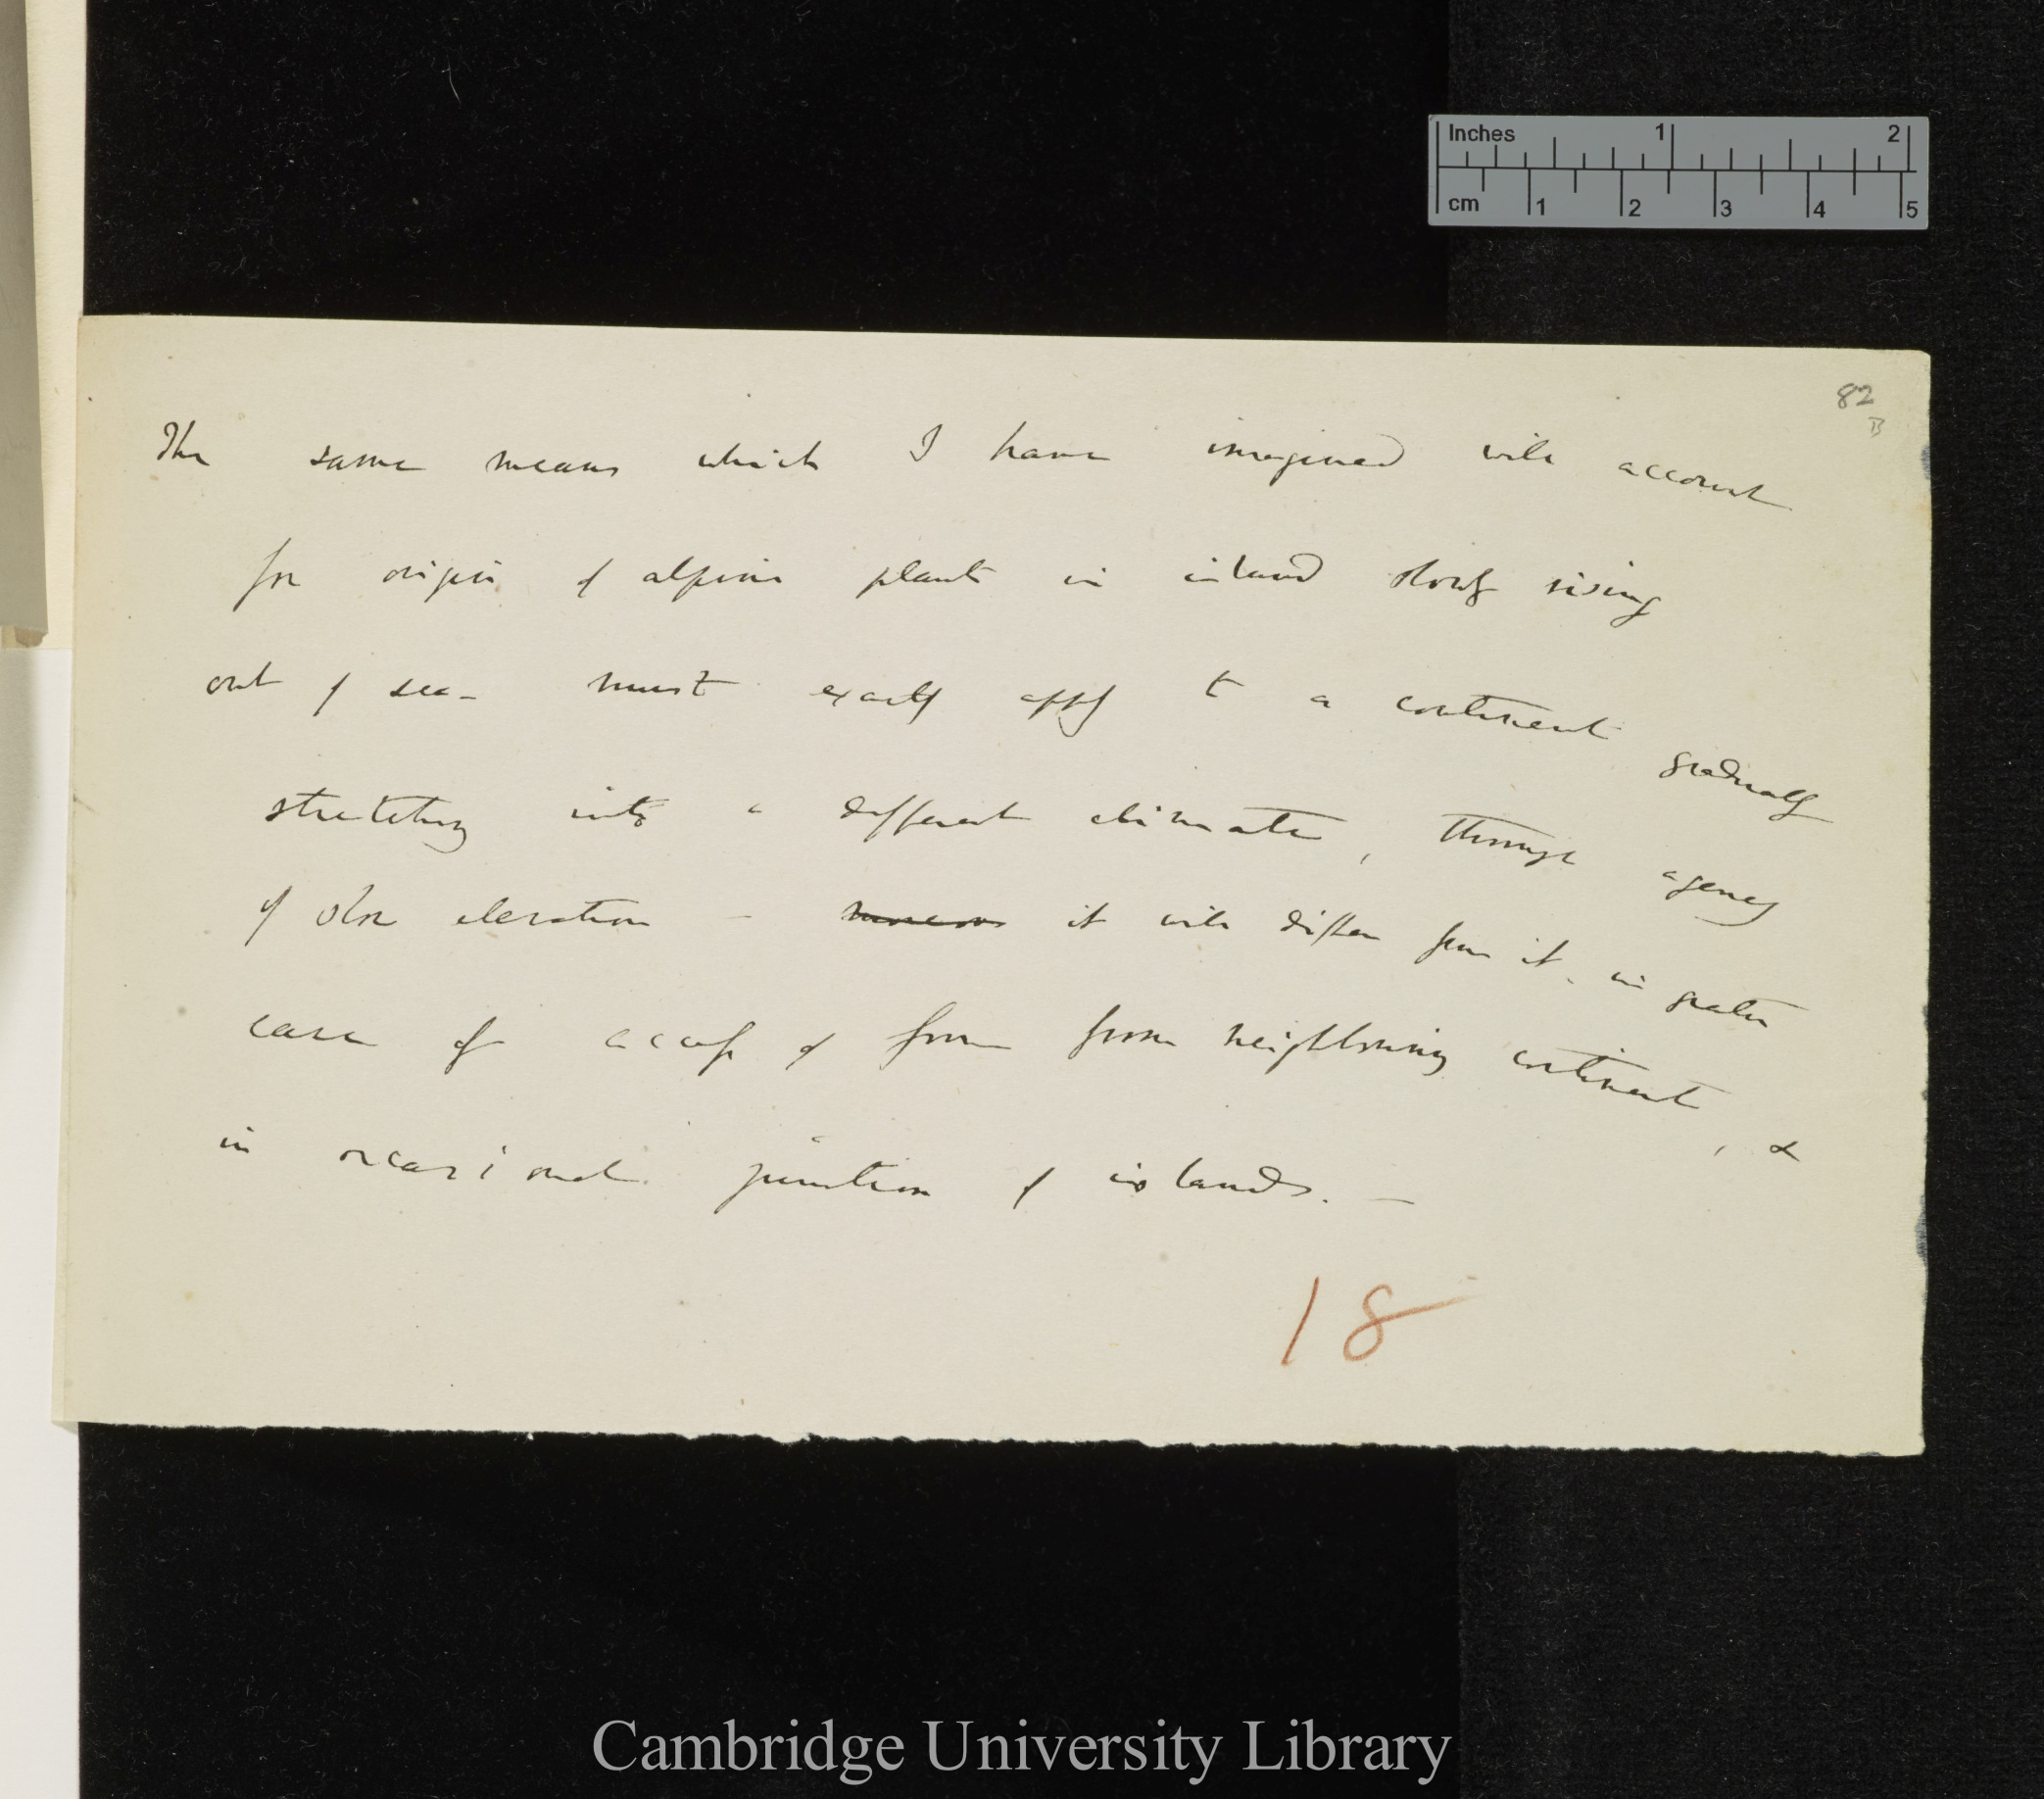 Inches 1 2
cm 1 2 3 4 5
82
B
The same means which I have imagined will account
for origin of alpine plants in island slowly rising
out of sea – must exactly apply to a continent gradually
stretching into a different climate, through agency
of slow elevation – it will differ from it in greater
case of access of forms from neighbouring continent, &
in occasional junction of islands. —
18
Cambridge University Library